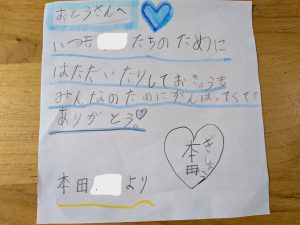 おとうさんへ
いつも たちのために
はただいたりしておきょうも
みんなのためにがんばってくてて
ありがとう。
本田 より
本田